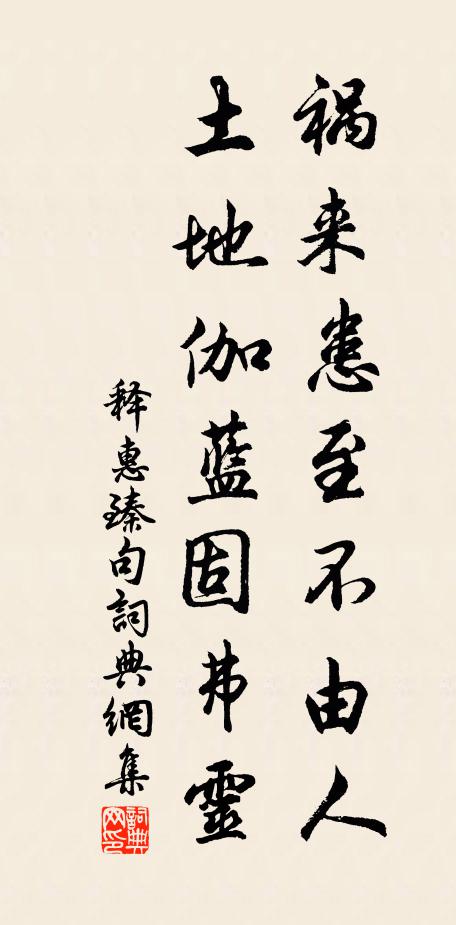 祸来患至不由人
土地伽藍固弗靈
释惠臻句詞典網集
詞典網印